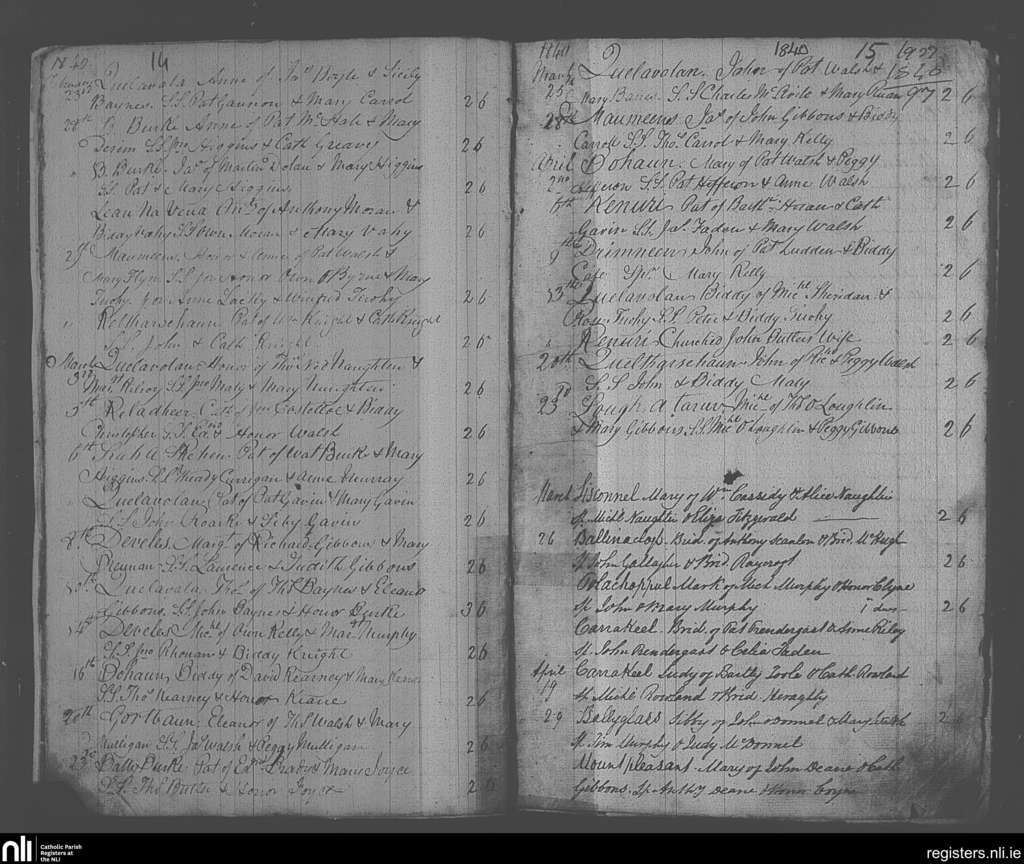 1840. 14
February Quelavala Anne of Jas Boyle & Sicily
23rd Baynes. SS Pat Gannon & Mary Carrol 2 6
28th Burke Anne of Pat McHale & Mary
SS Jno Higgins & Cath Greaves 2 6
B. Burke. Jas of Martin Dolan & Mary Higgins
SS Pat & Mary Higgins 2 6
Lean Na Vena of Anthony Moran &
Biddy Vahy SS Owen Moran & Mary Vahy 2 6
29 Maumeens Honor & Anne of Pat Walsh &
Mary Flyn SS for Honor Owen Byrne & Mary
Tuohy for Anne Lackey & Winifred Tuohy 2 6
Kiltharsehaun Pat of Wm Knight & Cath Knight
SS John & Cath Knight 2 6
March Quelavolan Honor of Thos Naughten &
3rd Margt Kilroy SS Jno Maly & Mary Naughten 2 6
5th Kiladheer Cath of Jno Costolloe & Biddy
Christopher SS & Honor Walsh 2 6
6th Pat of Wat Burke & Mary
Higgins SS Thady Currigan & Anne Murray 2 6
Quelavolan Pat of Pat Gavin & Mary Gavin
SS John Roarke & Siby Gavin 2 6
8th Develes. Margt of Richard Gibbons & Mary
SS Laurence & Judith Gibbons 2 6
Quelavala Thos of Thos Baynes & Eleanor
Gibbons. SS John Baynes & Honor Burke 2 6
14th Develes Michl of Owen Kelly & Mary Murphy
SS Jno Rhonan & Biddy Knight 2 6
16th Bohaun, Biddy of David Kearney & Mary
SS Thos Kearney & Honor Keane 2 6
20th Gortbaun, Eleanor of Thos Walsh & Mary
Mulligan SS Jas Walsh & Peggy Mulligan 2 6
23rd Bally Burke Pat of Edd & Mary Joyce
SS Thos Burke & Honor Joyce 2 6
1840 1840 15 1937
1840
97
March Quelavolan. John of Pat Walsh &
25 Mary Banes. SS Charles & Mary 2 6
28th Maumeenes Jas of John Gibbons & Biddy
Carroll SS Thos Carrol & Mary Kelly 2 6
April Bohaun. Mary of Pat Walsh & Peggy
2nd Hefferon SS Pat Hefferon & Anne Walsh 2 6
8th Renuri Pat of Bartw Horan & Cath
Gavin SS Jas Faden & Mary Walsh 2 6
9th Drimneen John of Pat Ludden & Biddy
Mary Kelly 2 6
13th Quelavolan Biddy of Michl Sheridan &
Rose Tuohy SS Peter & Biddy Tuohy 2 6
Renuri Churched John Butlers Wife 2 6
20th Quiltharsehaun John of & Peggy Walsh
SS John & Biddy Maly 2 6
23rd Lough a Michl of Thos O Loughlin
& Mary Gibbons SS Michl O Loughlin & Peggy Gibbons 2 6
March Lisconnel Mary of Wm Cassidy & Alice Naughtin
Sp Michl Naughtin & Eliza Fitzgerald 2 6
26 Ballinacloy Brid. of Anthony Scanlon & Brid. McHugh
Sp John Gallagher & Brid. Raycroft 2 6
Polachoppul Mark of Mich Murphy & Honor Clyne
Sp John & Mary Murphy 2 6
Carrakeel Brid. of Pat Prendergast & Anne Riley
Sp. John Prendergast & Celia Faden
April Carrakeel Judy of Bartly Toole & Cath Rowland
19 Sp Michl Rowland & Brid. Heraghty
29 Ballyglass Sibby of John & Mary 2 6
Sp Tim Murphy & Judy McDonnel
Mount pleasant Mary of John Deane & Cath
Gibbons. Sp Anthy Deane & Honor Coyne
nli Catholic Parish
Registers at
the NLI
registers.nli.ie